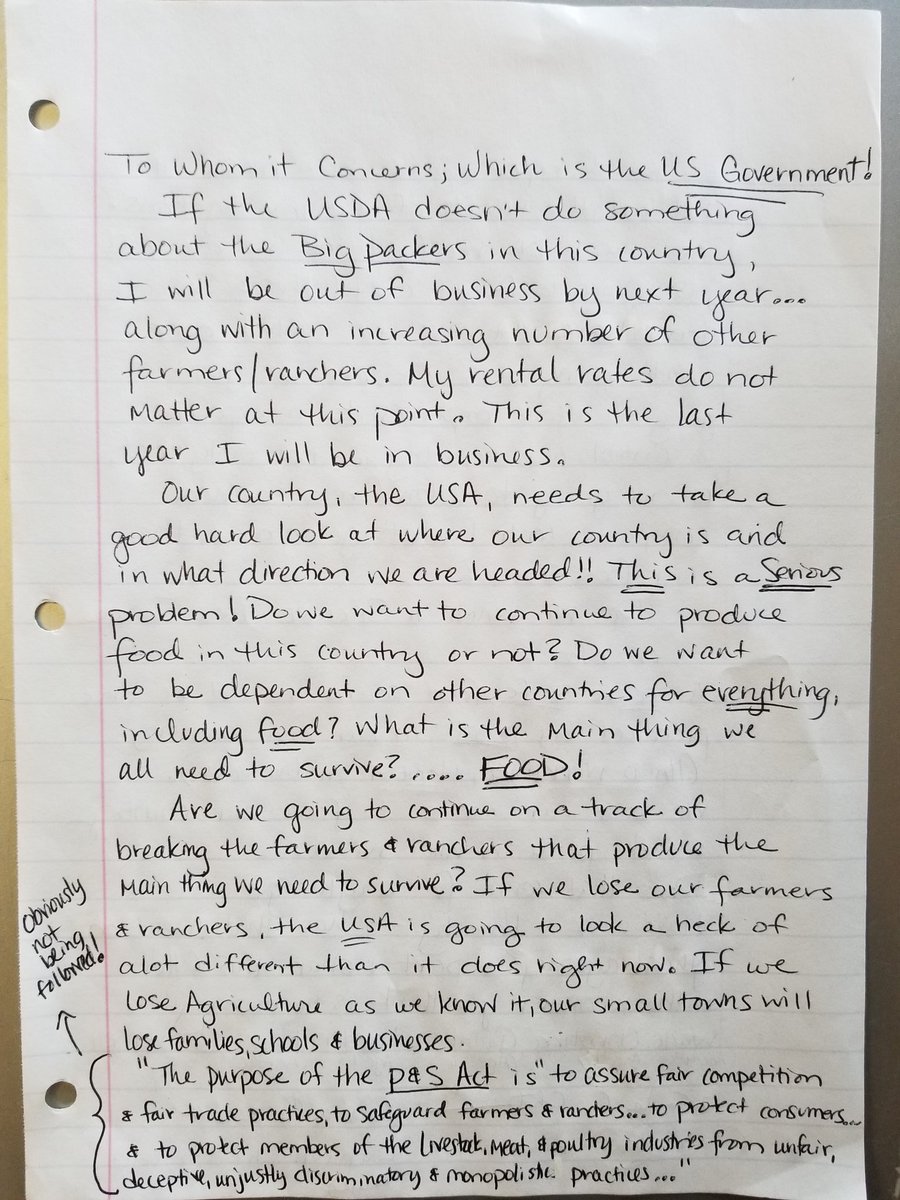 To Whom it Concerns; Which is the US Government!
If the USDA doesn't do something
about the Big packers in this country,
I will be out of business by next year...
along with an increasing number of other
farmers/ranchers. My rental rates do not
matter at this point. This is the last
year I will be in business.
Our country, the USA, needs to take a
good hard look at where our country is and
in what direction we are headed!! This is a Serious
problem! Do we want to continue to produce
food in this country or not? Do we want
to be dependent on other countries for everything,
including food? What is the Main thing we
all need to survive?.... FOOD!
Are we going to continue on a track of
breaking the farmers & ranchers that produce the
Main thing we need to survive? If we lose our farmers
& ranchers, the USA is going to look a heck of
alot different than it does right now. If we
lose Agriculture as we know it, our small towns will
lose families, schools & businesses.
"The purpose of the P&S Act is" to assure fair competition
& fair trade practices, to safeguard farmers & ranchers...to protect consumers...
& to protect members of the livestock, meat, & poultry industries from unfair,
deceptive, unjustly discriminatory & monopolistic practices..."
Obviously
not
being
followed!